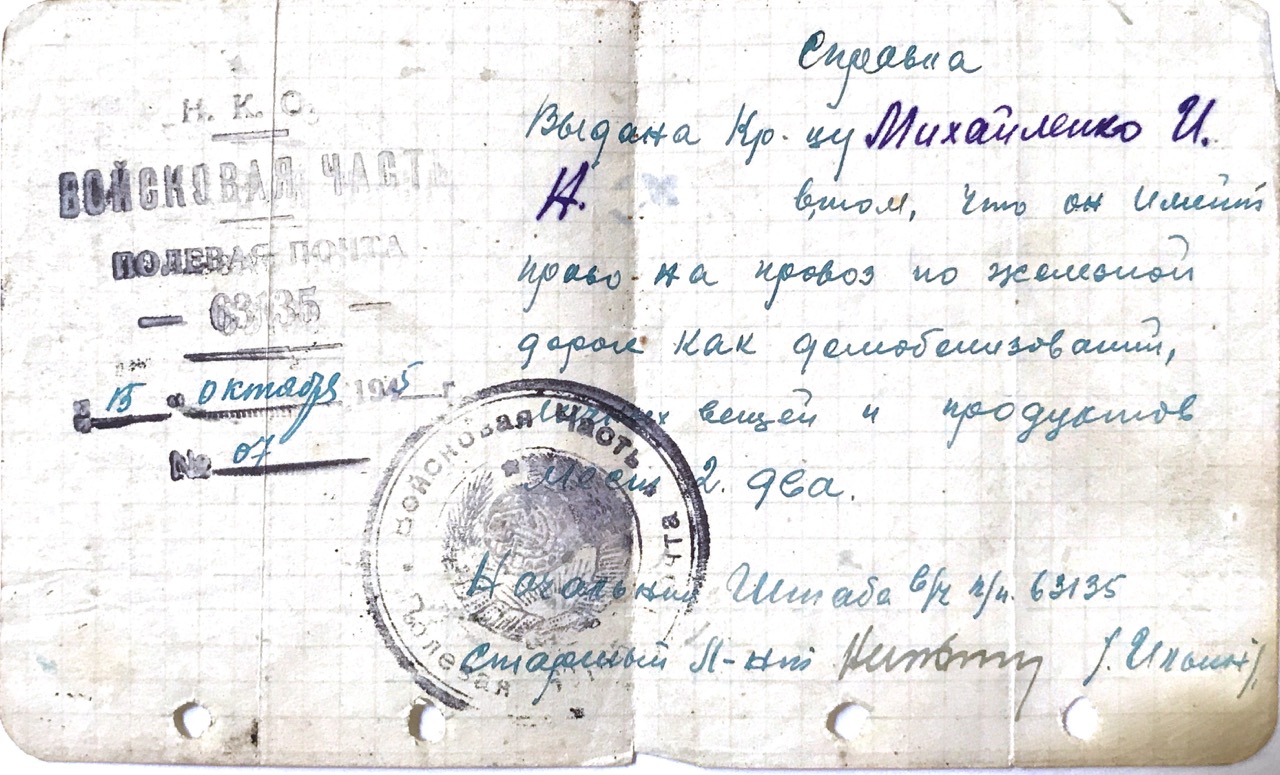 Н. К. О.
ВОЙСКОВАЯ ЧАСТЬ
ПОЛЕВАЯ ПОЧТА
— 63135 —
"15" октября 1945 г.
№ 07
Справка
Выдана Кр-цу Михайленко И.
Н. втом, что он имеит
право на провоз по железной
дороге как демобелизований,
вещей и продуктов
Мест 2. два.
Начальник Штаба в/ч п/п. 63135
Старший Л-нт /Ильин/
Войсковая часть
Полевая почта